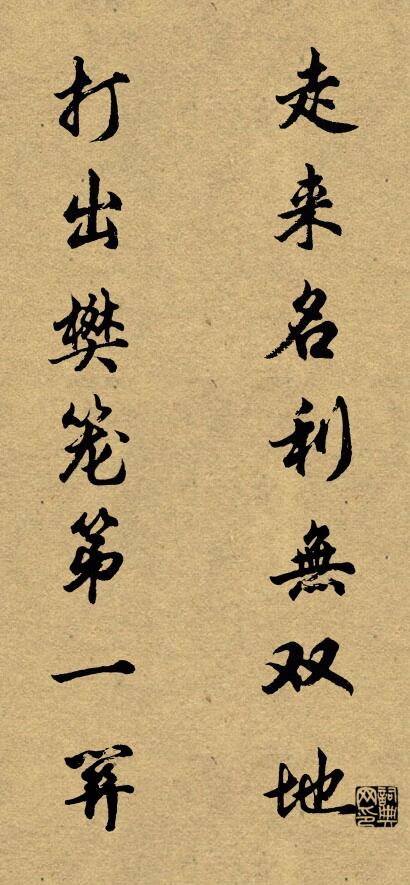 走来名利無双地
打出樊笼第一關
詞典网印